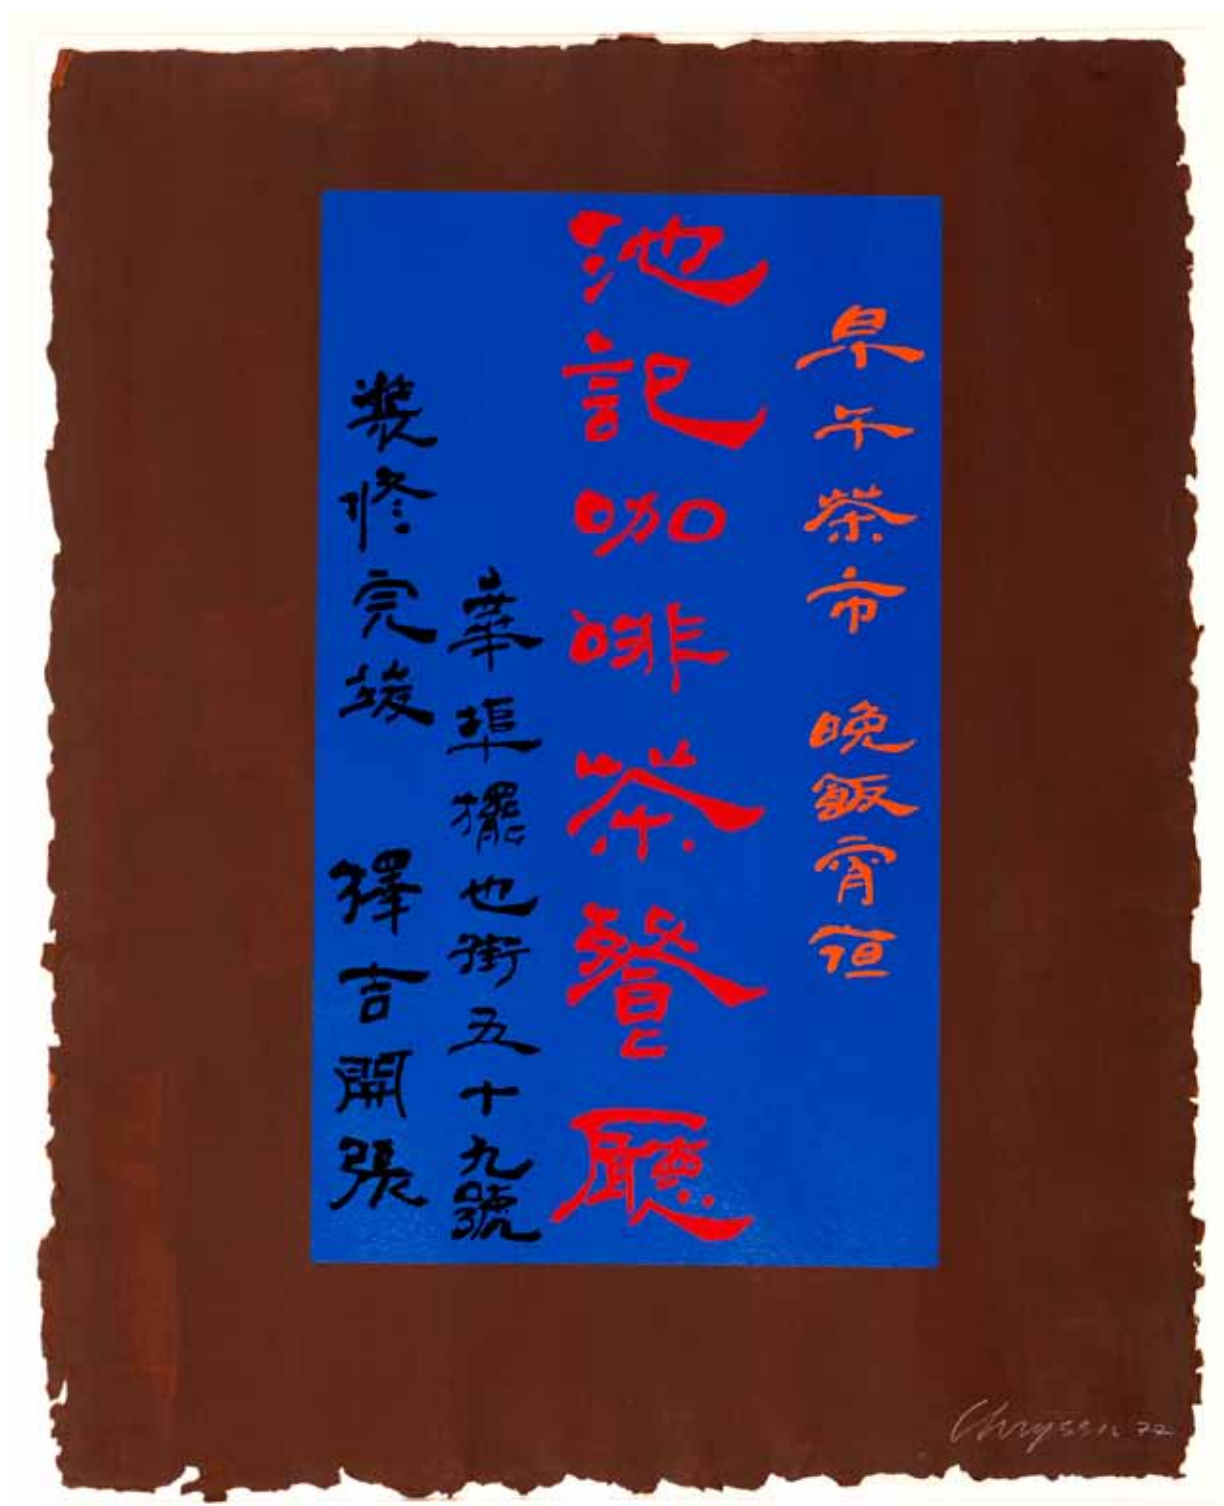 早午茶市 晚飯宵
池記咖啡茶餐廳
華埠擺也街五十九號
裝修完竣 擇吉開張
Chryssa 72